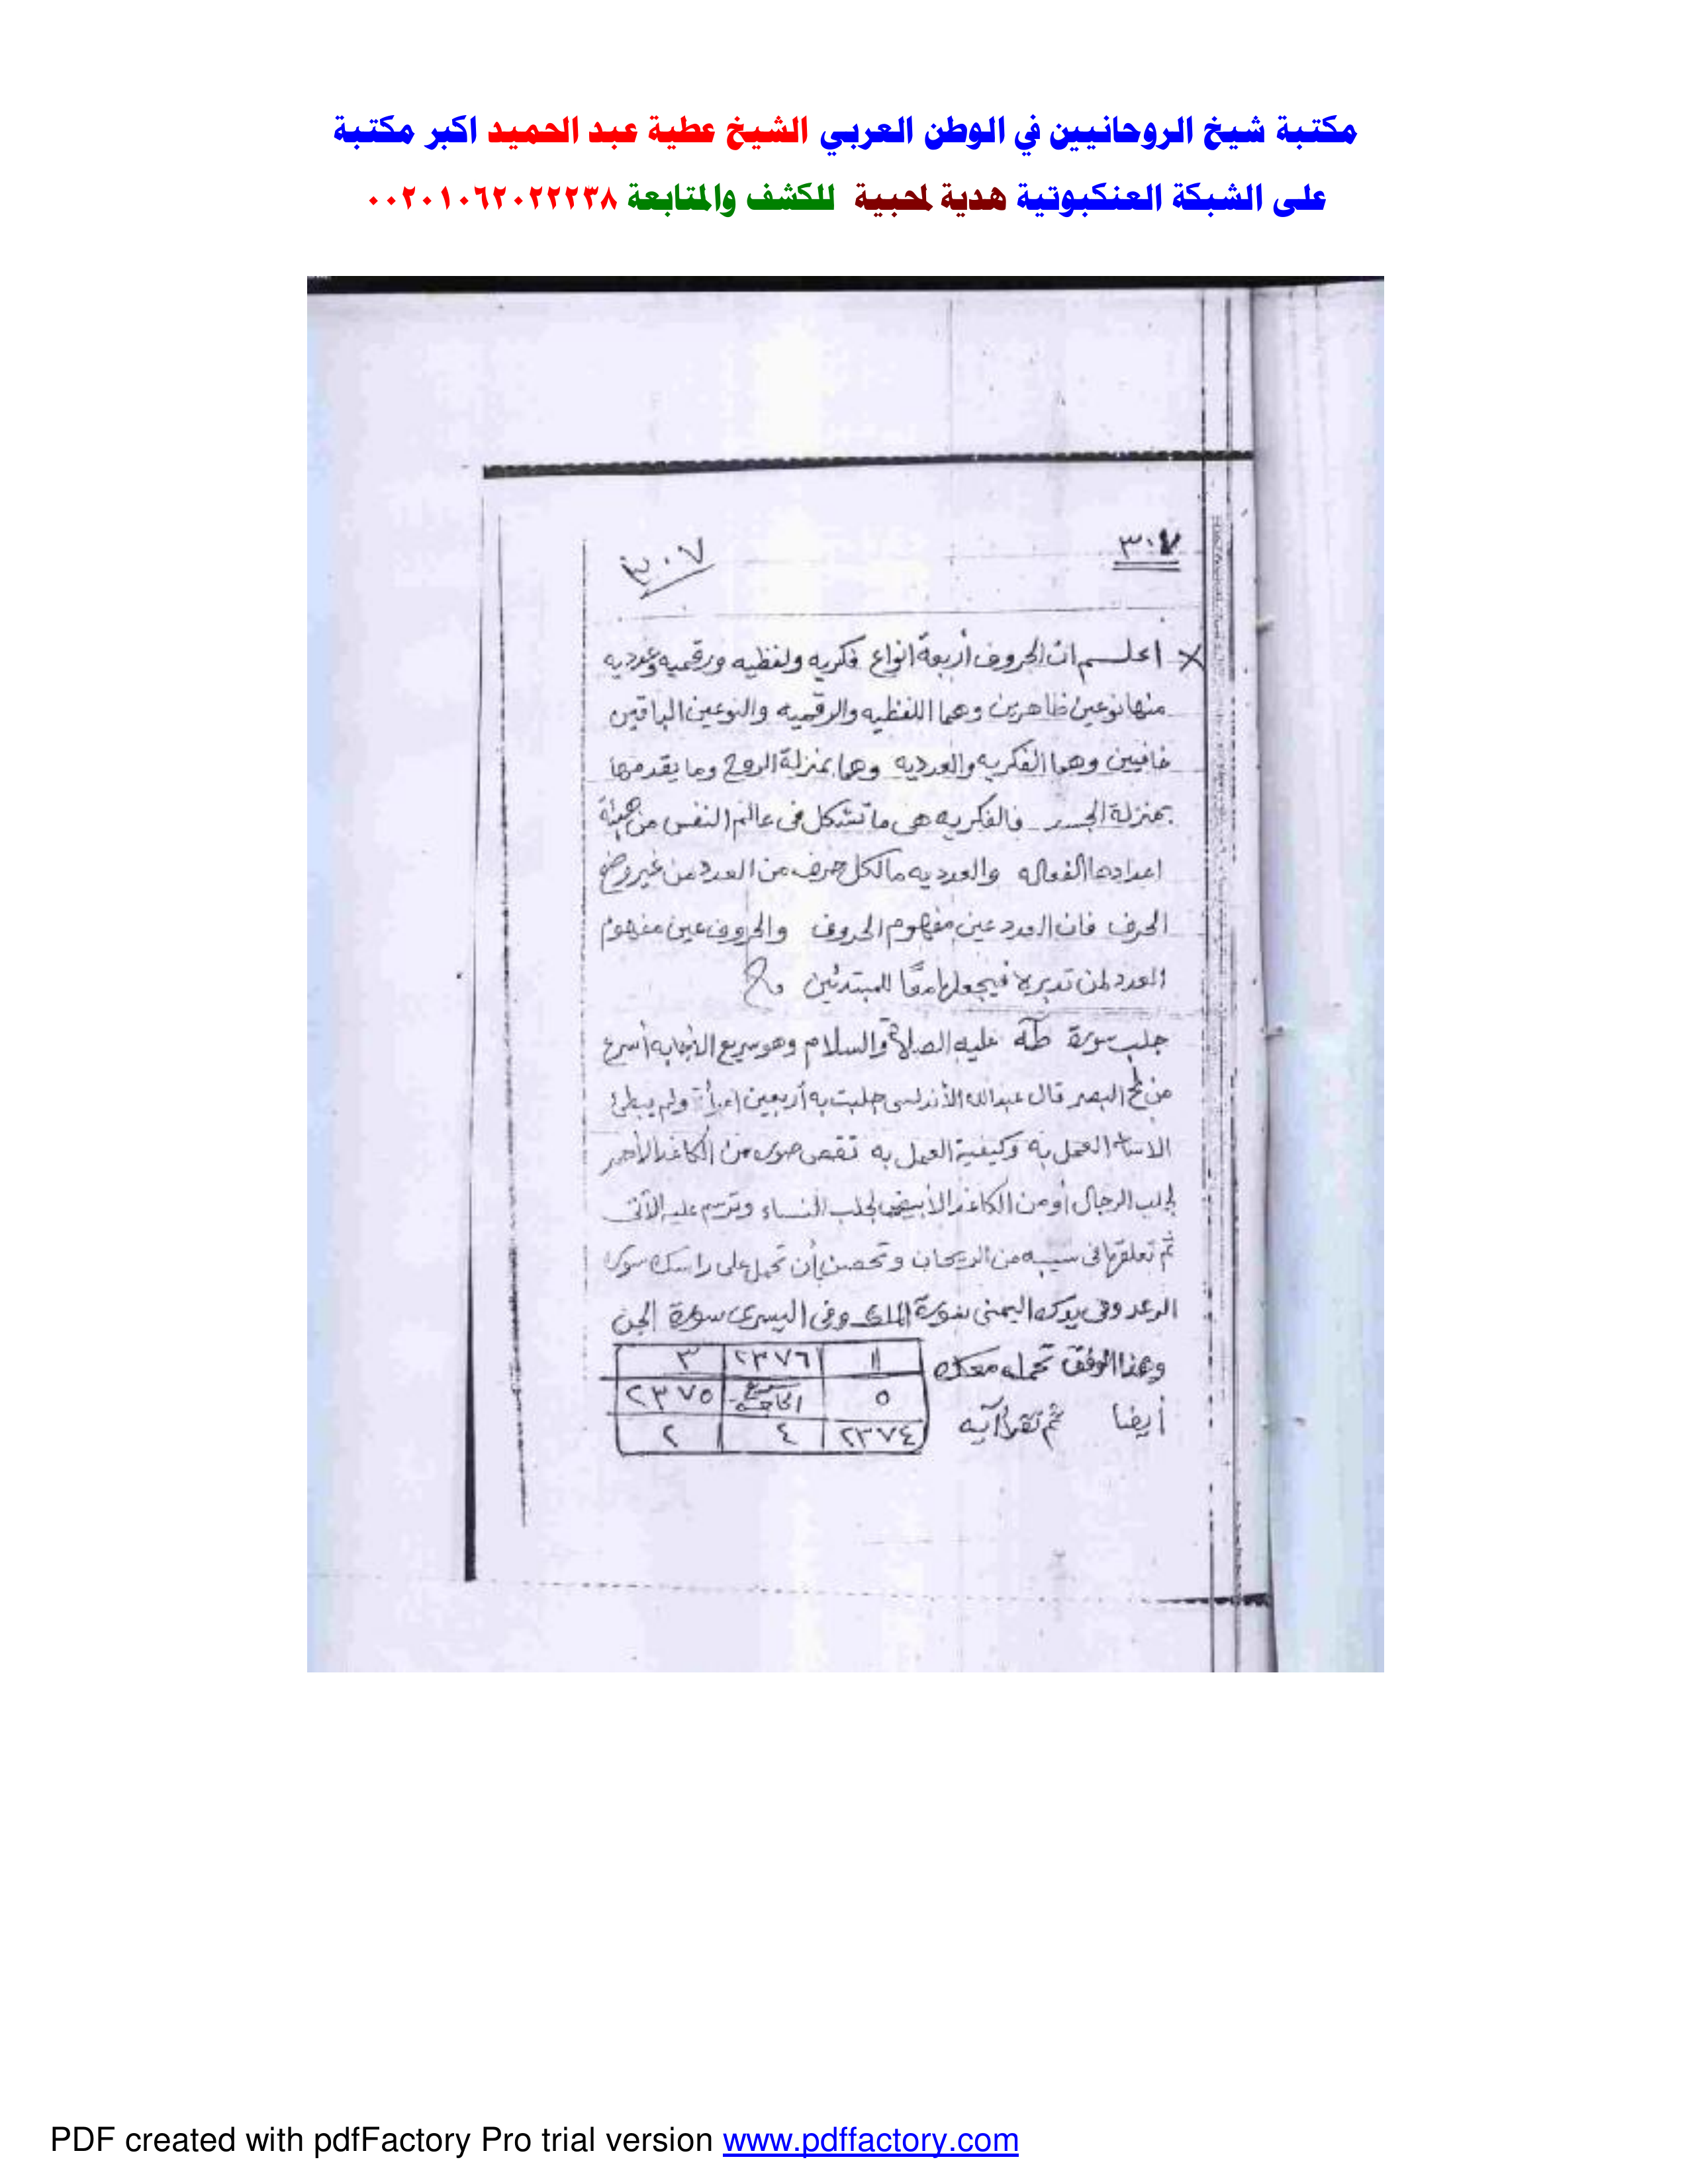 مكتبة شيخ الروحانيين في الوطن العربي الشيخ عطية عبد الحميد اكبر مكتبة
على الشبكة العنكبوتية هدية لمحبية للكشف والمتابعة ٠٠٢٠١٠٦٢٠٢٢٢٣٨
٣٠٧ ٣٠٧
× اعلم ان الحروف أربعة انواع فكريه ولفظيه ورقميه وعدديه
منها نوعين ظاهرين وهما اللفظيه والرقميه والنوعين الباقين
خافيين وهما الفكريه والعدديه وهما بمنزلة الروح وما يقدمها
بمنزلة الجسد فالفكريه هى ما تشكل فى عالم النفس من هيئة
اعدادها الفعاله والعدديه مالكل حرف من العدد من غير وضع
الحرف فان العدد عين مفهوم الحروف والحروف عين مفهوم
العدد لمن تدبره فيجعلها معًا للمبتدئين
جلب سورة طه عليه الصلاة والسلام وهو سريع الاجابه أسرع
من لمح البصر قال عبدالله الأندلسى جلبت به أربعين امرأة ولم يبطئ
العمل به وكيفية العمل به تقص صوره من الكاغد الأحمر
لجلب الرجال أو من الكاغد الأبيض لجلب النساء وترسم عليه الآتى
ثم تعلقها فى سيبه من الريحان وتحصن بأن تحمل على راسك سورة
الرعد وفى يدك اليمنى سورة الملك وفى اليسرى سورة الجن
وهذا الوفق تحمله معك
أيضا ثم تقرأ آيه
١١ ٢٣٧٦ ٣
٥ الحاجة ٢٣٧٥
٢٣٧٤ ٤ ٢
PDF created with pdfFactory Pro trial version www.pdffactory.com